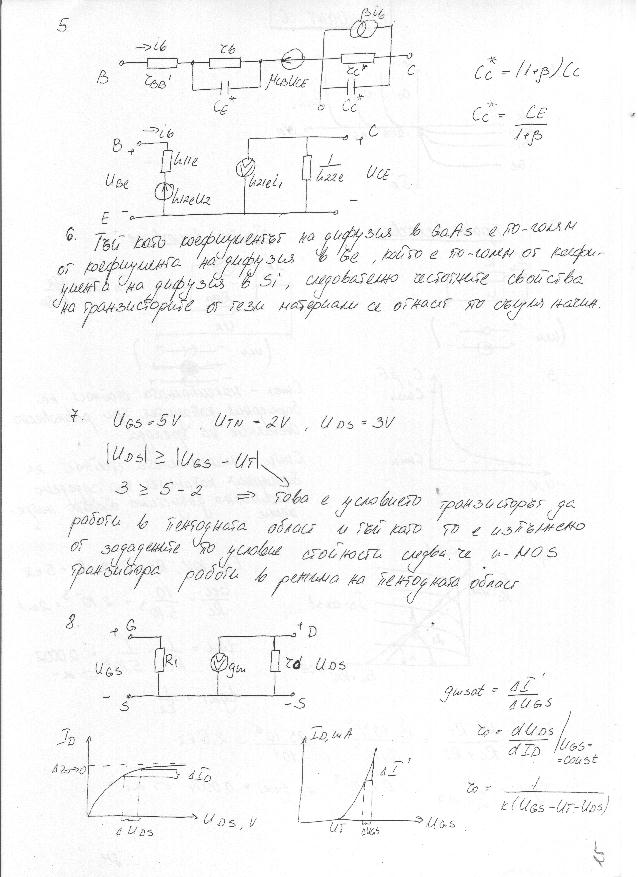 5
βi6
→i6
B
r6
C
rBB'
μCBUCE
rC*
CE*
CC*
CC* = (1+β)CC
CC* = CE / 1+β
→i6
B
+
h11e
UBe
h12eU2
h21ei1
1/h22e
+ C
UCE
E
-
-
6. Тъй като коефициентът на дифузия в GaAs е по-голям
от коефициента на дифузия в Ge, който е по-голям от коефи-
циента на дифузия в Si, следователно честотните свойства
на транзисторите от тези материали се отнасят по същия начин.
7. UGS=5V UTN=2V, UDS=3V
|UDS| ≥ |UGS - UT|
3 ≥ 5-2 ⇒ това е условието транзисторът да
работи в пентодната област и тъй като то е изпълнено
от зададените по условие стойности следва, че n-MOS
транзистора работи в режима на пентодната област
8.
+ G
+ D
UGS
R1
gm
rd
UDS
- S
- S
gmsat = ΔI' / ΔUGS
r0 = dUDS / dID | UGS=const
r0 = 1 / k(UGS-UT-UDS)
ID
ΔID
ΔUDS
UDS, V
ID, mA
ΔI'
UT
ΔUGS
UGS
15